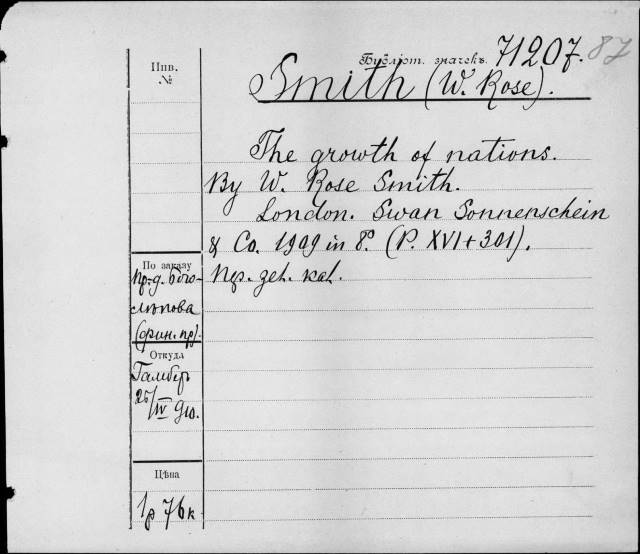 Инв.
№
Библіот. значекъ. 71207. 87
Smith (W. Rose).
The growth of nations.
By W. Rose Smith.
London. Swan Sonnenschein
& Co. 1909 in 8º. (P. XVI+301).
По заказу
Пр-д. Бого-
лѣпова
(фин. пр).
Нѣз. деп. кат.
Откуда
Гамберъ
25/IV 910.
Цѣна
1р 76к